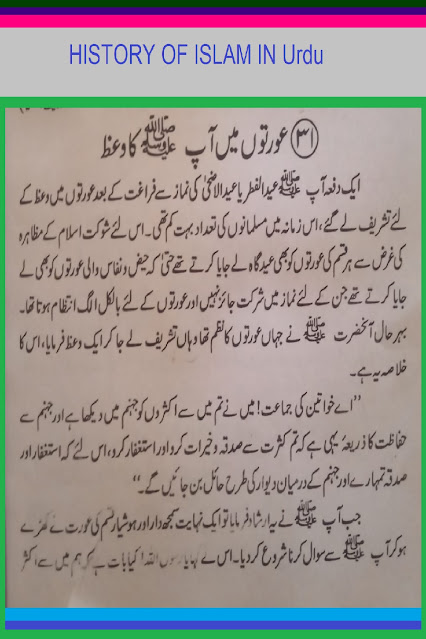 HISTORY OF ISLAM IN Urdu
(۳۱) عورتوں میں آپ ﷺ کا وعظ
ایک دفعہ آپ ﷺ عید الفطر یا عید الاضحیٰ کی نماز سے فراغت کے بعد عورتوں میں وعظ کے
لئے تشریف لے گئے، اس زمانہ میں مسلمانوں کی تعداد بہت کم تھی۔ اس لئے شوکت اسلام کے مظاہرہ
کی غرض سے ہر قسم کی عورتوں کو بھی عید گاہ لے جایا کرتے تھے حتیٰ کہ حیض و نفاس والی عورتوں کو بھی لے
جایا کرتے تھے جن کے لئے نماز میں شرکت جائز نہیں اور عورتوں کے لئے بالکل الگ انتظام ہوتا تھا۔
بہر حال آنحضرت ﷺ نے جہاں عورتوں کا نظم تھا وہاں تشریف لے جا کر ایک وعظ فرمایا، اس کا
خلاصہ یہ ہے۔
”اے خواتین کی جماعت! میں نے تم میں سے اکثروں کو جہنم میں دیکھا ہے اور جہنم سے
حفاظت کا ذریعہ یہی ہے کہ تم کثرت سے صدقہ و خیرات کرو اور استغفار کرو، اس لئے کہ استغفار اور
صدقہ تمہارے اور جہنم کے درمیان دیوار کی طرح حائل بن جائیں گے۔“
جب آپ ﷺ نے یہ ارشاد فرمایا تو ایک نہایت سمجھ دار اور ہوشیار قسم کی عورت نے کھڑے
ہو کر آپ ﷺ سے سوال کرنا شروع کر دیا۔ اس نے کہا یا رسول اللہ! کیا بات ہے کہ ہم میں سے اکثر